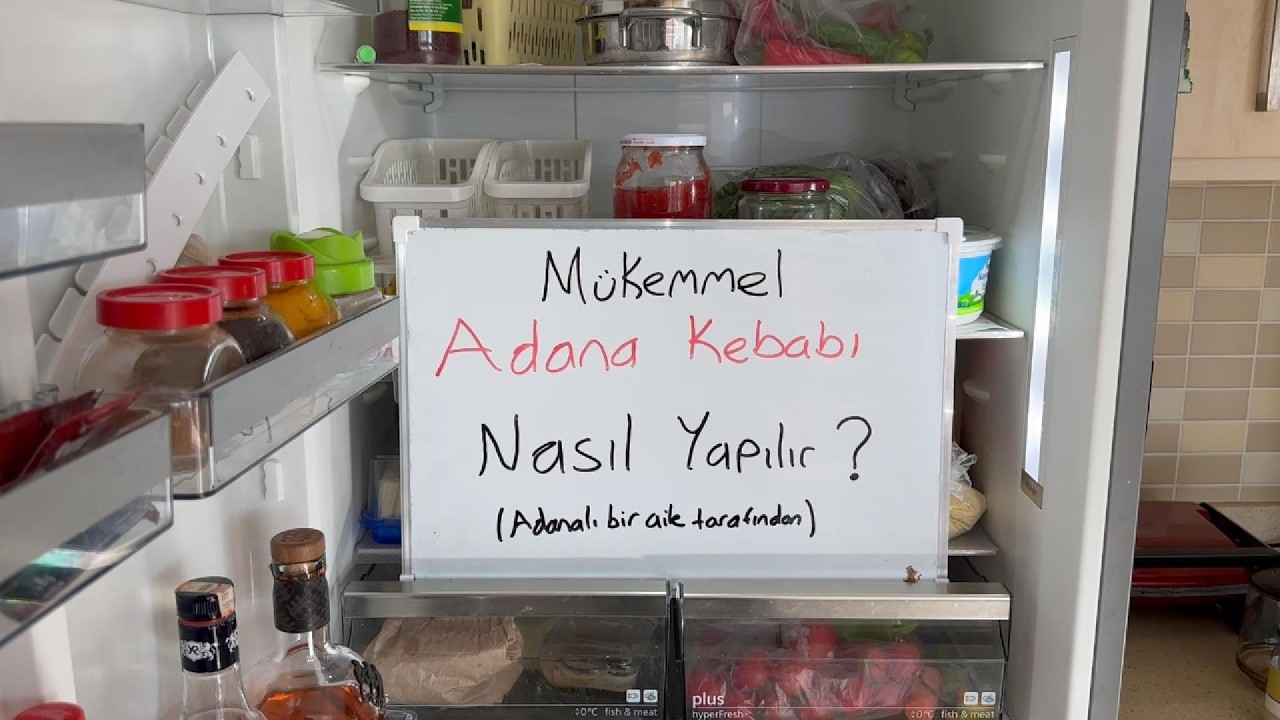 Mükemmel
Adana Kebabı
Nasıl Yapılır ?
(Adanalı bir aile tarafından)
plus
hyperFresh
0°C fish & meat
0°C fish & meat